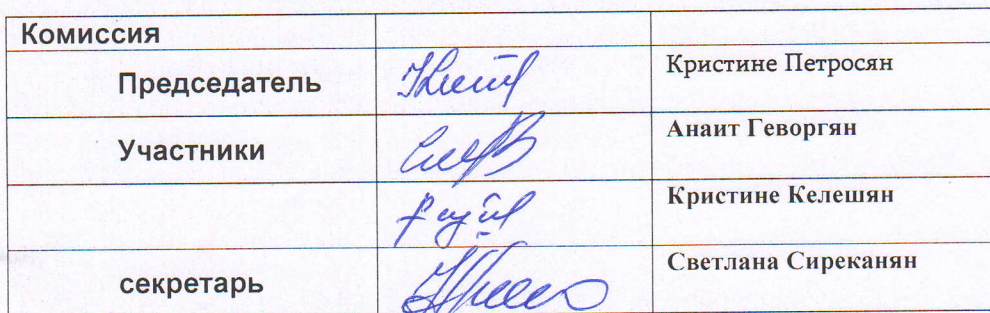 Комиссия
Председатель Кристине Петросян
Участники Анаит Геворгян
Кристине Келешян
секретарь Светлана Сиреканян